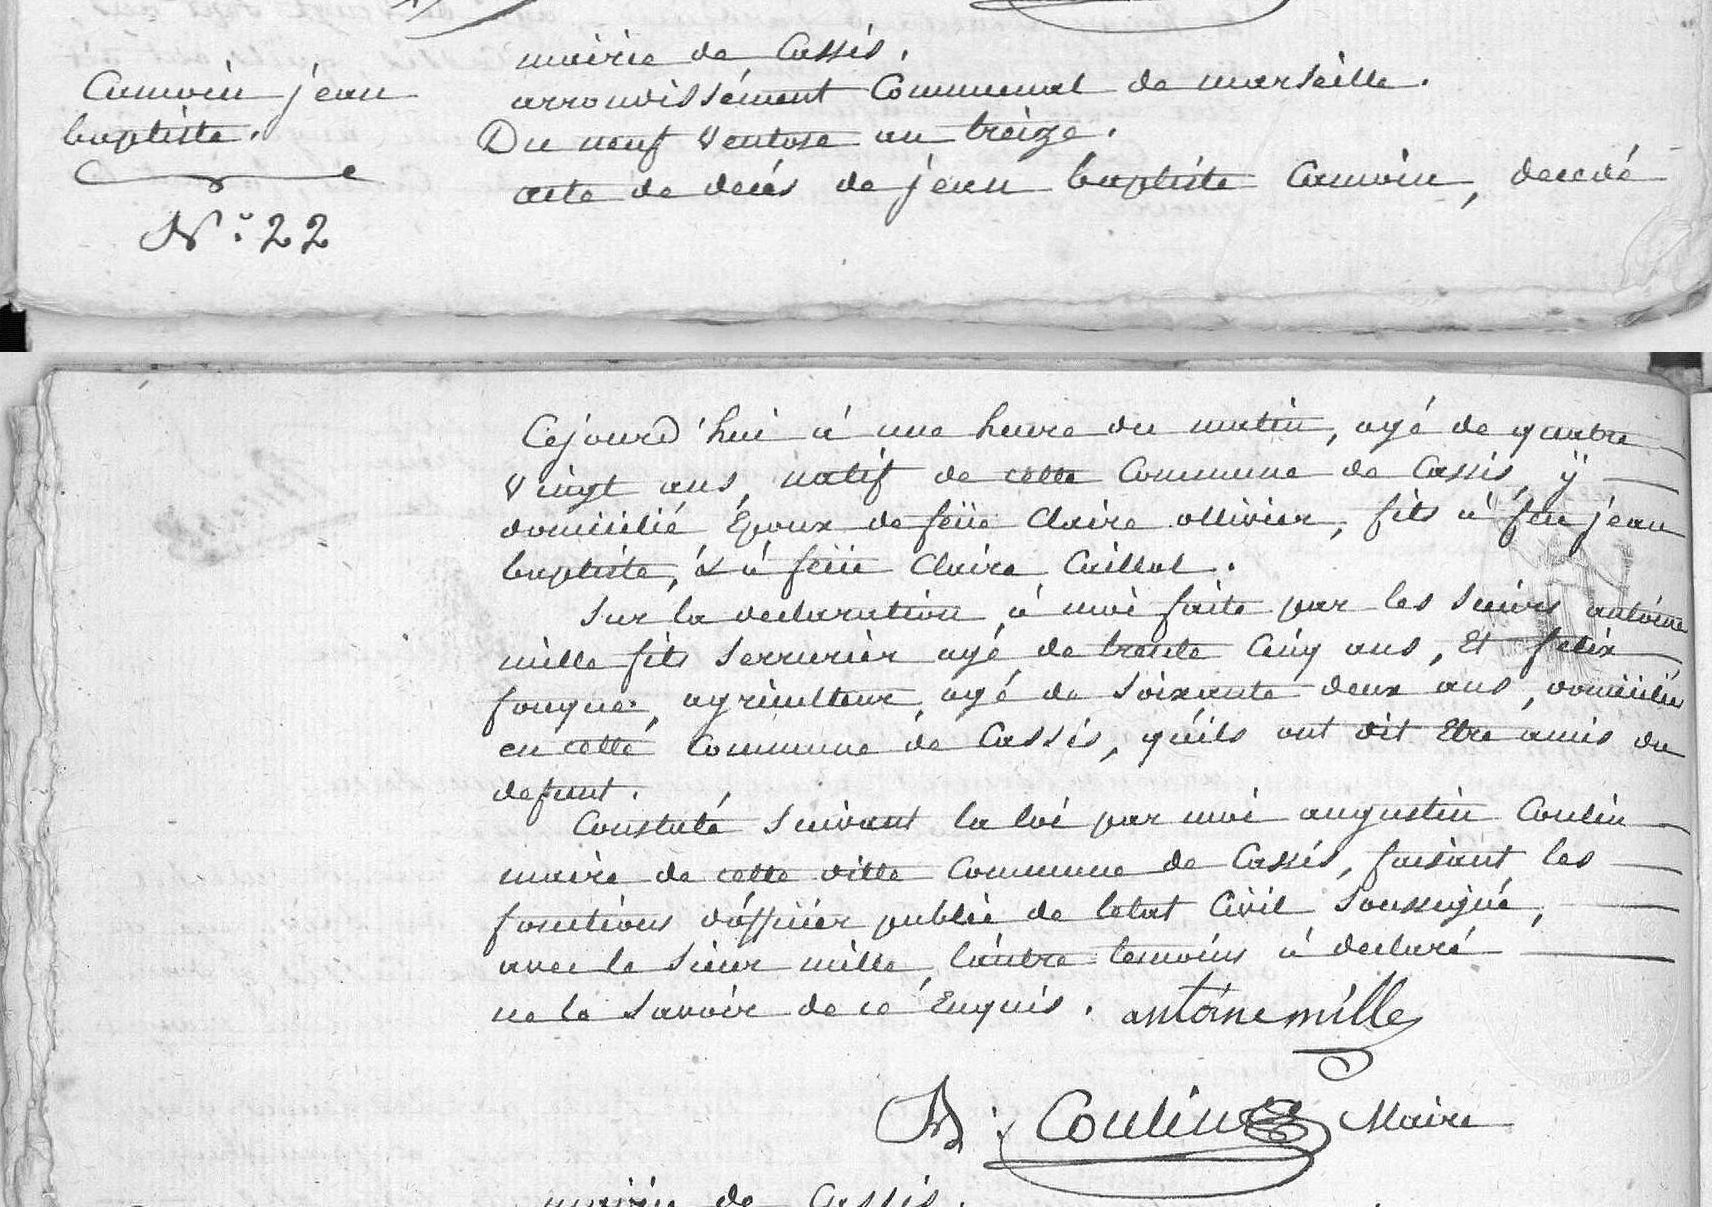 mairie de Cassis.
Camoin jean
arrondissément Communal de marseille.
baptiste.
Du neuf Ventose an treize.
acte de decés de jean baptiste Camoin, decedé
N.° 22
Cejourd'hui á une heure du matin, agé de quatre
Vingt ans, natif de cette Commune de Cassis, ÿ
domicilié, Époux de feüe Claire ollivier, fils á feu jean
baptiste, & á feüe Claire Caillol.
Sur la declaration á moi faite par les Sieurs antoine
mille fils Serrurier agé de trente Cinq ans, Et felix
fouque, agriculteur, agé de Soixante deux ans, domiciliés
en cette Commune de Cassis, qu'ils ont dit Etre amis du
defunt.
Constaté Suivant la loi par moi augustin Coulin
maire de cette ville Commune de Cassis, faisant les
fonctions d'officier public de letat Civil Soussigné,
avec le Sieur mille, l'autre temoins á declaré
ne le Savoir de ce Enquis. antoine mille
A: Coulin Maire
mairie de Cassis.